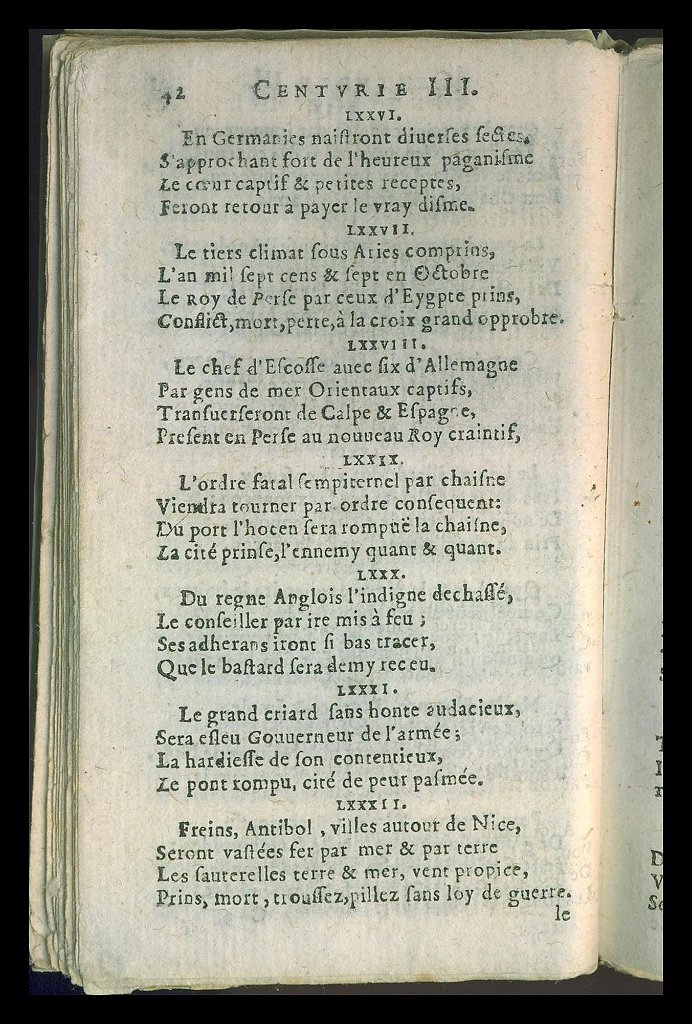 42 CENTVRIE III.
LXXVI.
En Germanies naiſtront diuerſes ſectes,
S'approchant fort de l'heureux paganiſme
Le cœur captif & petites receptes,
Feront retour à payer le vray diſme.
LXXVII.
Le tiers climat ſous Aries comprins,
L'an mil ſept cens & ſept en Octobre
Le Roy de Perſe par ceux d'Eygpte prins,
Conflict, mort, perte, à la croix grand opprobre.
LXXVIII.
Le chef d'Eſcoſſe auec ſix d'Allemagne
Par gens de mer Orientaux captifs,
Tranſuerſeront de Calpe & Eſpagne,
Preſent en Perſe au nouueau Roy craintif,
LXXIX.
L'ordre fatal ſempiternel par chaiſne
Viendra tourner par ordre conſequent:
Du port l'hocen ſera rompuë la chaiſne,
La cité prinſe, l'ennemy quant & quant.
LXXX.
Du regne Anglois l'indigne dechaſſé,
Le conſeiller par ire mis à feu ;
Ses adherans iront ſi bas tracer,
Que le baſtard ſera demy receu.
LXXXI.
Le grand criard ſans honte audacieux,
Sera eſleu Gouuerneur de l'armée ;
La hardieſſe de ſon contentieux,
Le pont rompu, cité de peur paſmée.
LXXXII.
Freins, Antibol , villes autour de Nice,
Seront vaſtées fer par mer & par terre
Les ſauterelles terre & mer, vent propice,
Prins, mort , trouſſez, pillez ſans loy de guerre.
le